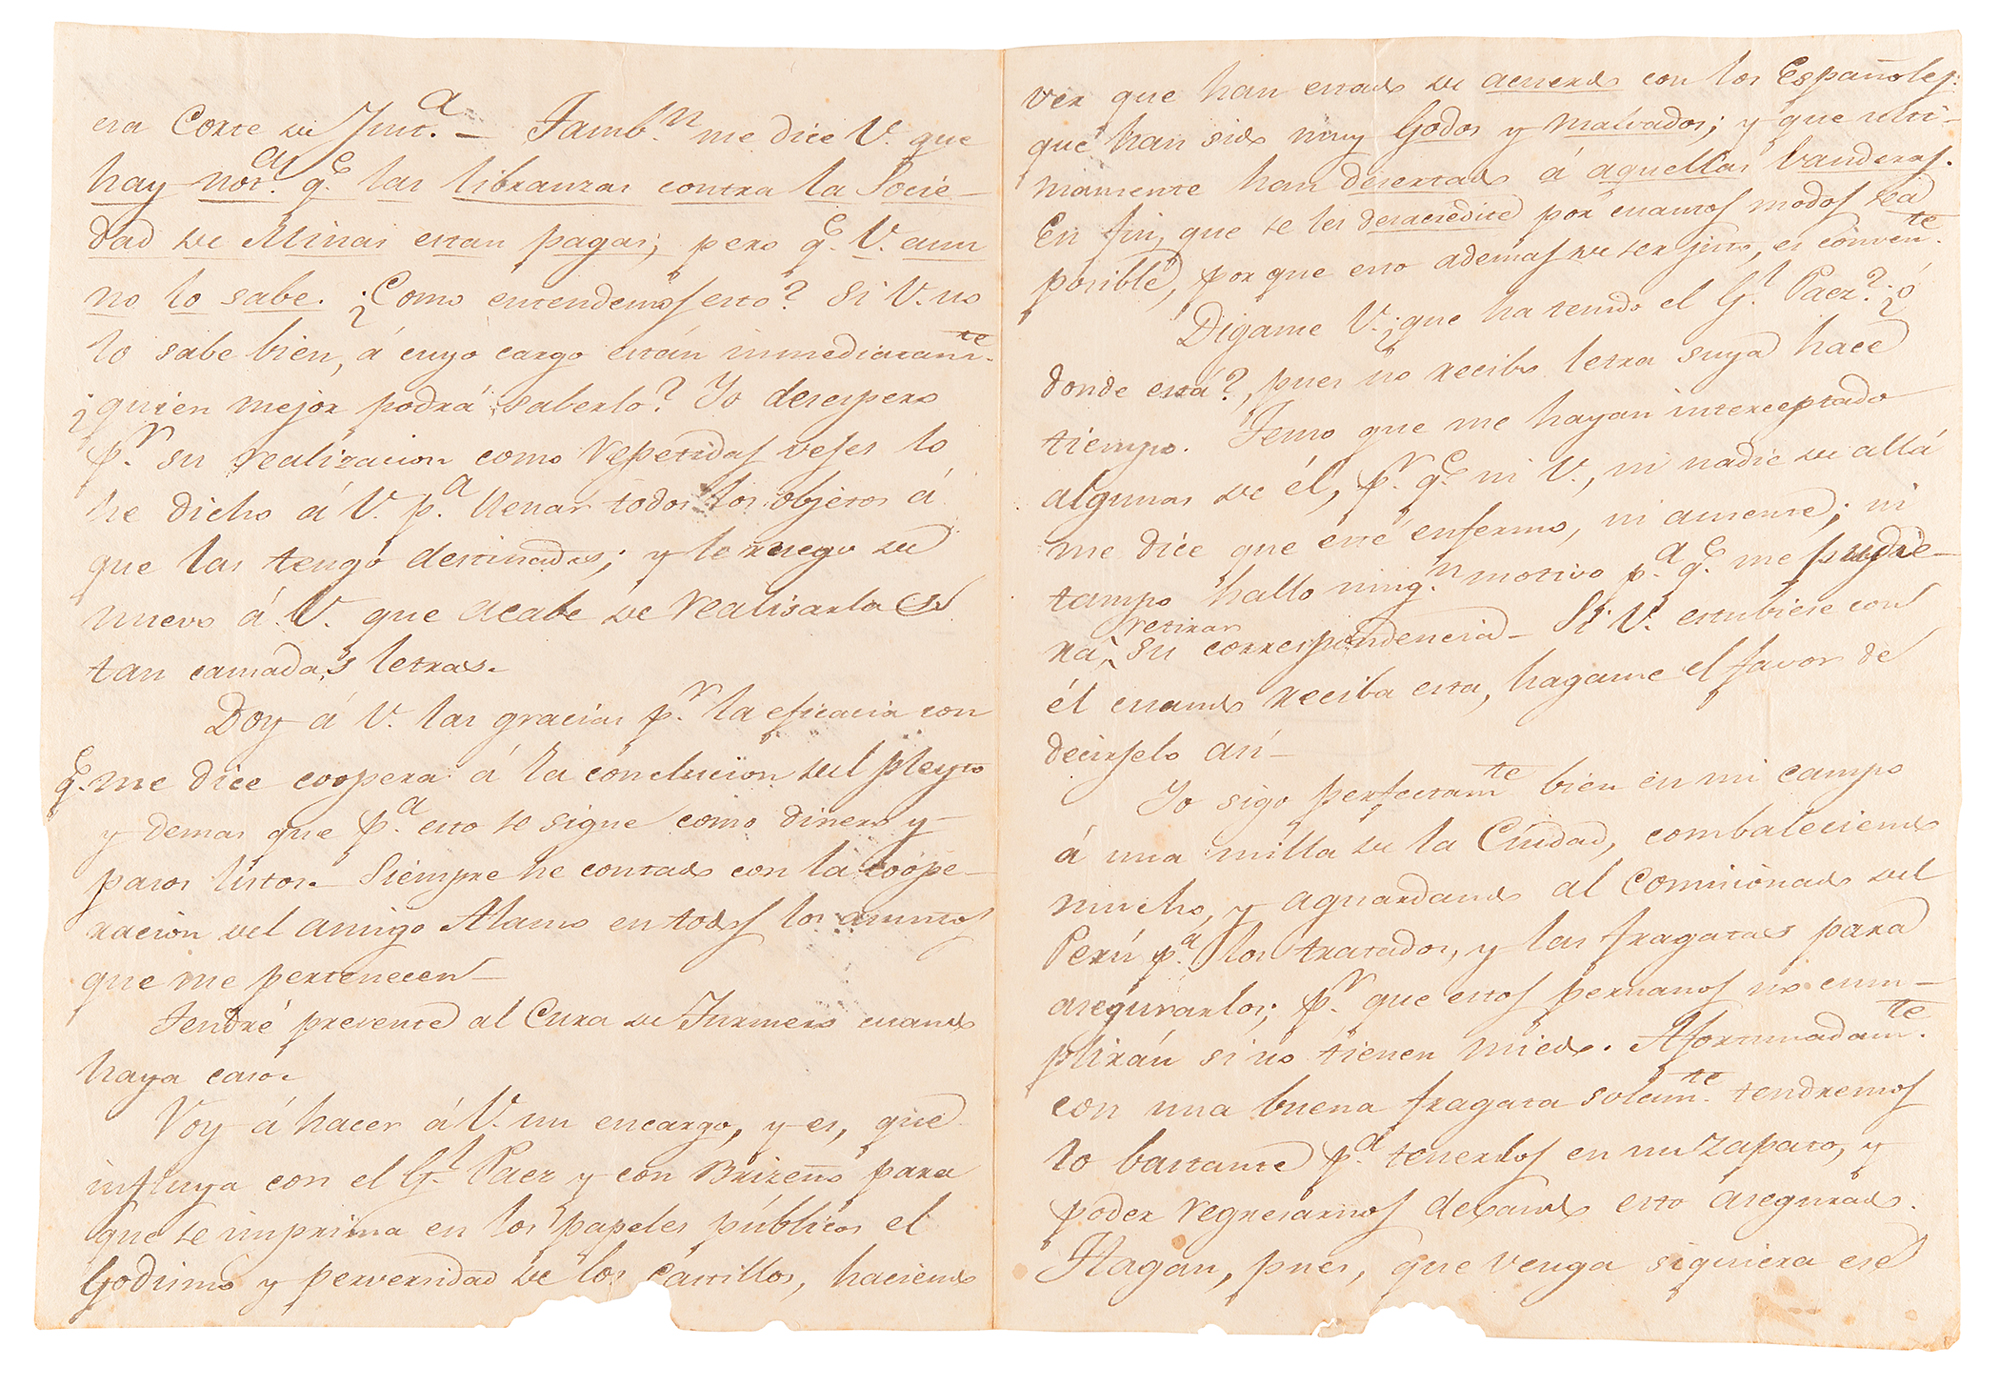 esa Corte de Just.ª – Tamb.n me dice V. que
hay not.as q.e las libranzas contra la Socie-
dad de Minas estan pagas; pero q.e V. aun
no lo sabe. ¿Como entendemos esto? Si V. no
lo sabe bien, á cuyo cargo están inmediatam.te
¿quien mejor podrá saberlo? Yo desespero
p.r su realizacion como repetidas veses lo
he dicho á V. p.a llenar todos los objetos á
que las tengo destinadas; y le ruego de
nuevo á V. que acabe de realisarlas
tan cansadas letras.
Doy á V. las gracias p.r la eficacia con
q.e me dice coopera á la conclusion del pleyto
y demas que p.a esto se sigue como dinero y
pasos listos. – Siempre he contado con la coope-
racion del amigo Alamo en todos los asuntos
que me pertenecen –
Tendré presente al Cura de Turmero cuando
haya caso.
Voy á hacer á V. un encargo, y es, que
influya con el G.l Paez y con Brizeño para
que se imprima en los papeles públicos el
Godismo y perversidad de los Castillos, haciendo
ver que han estado de acuerdo con los Españoles:
que han sido muy Godos y malvados; y que ulti-
mamente han desertado á aquellas banderas.
En fin, que se les desacredite por cuantos modos sea
posible, porque esto ademas de ser justo, es conven.te
Digame V. ¿que ha tenido el G.l Paez? ¿ó
donde está?, pues no recibo letra suya hace
tiempo. Temo que me hayan interceptado
algunas de él, p.r q.e ni V., ni nadie de allá
me dice que esté enfermo, ni ausente; ni
tampo hallo ning.n motivo p.a q.e me pudie-
retirar
ra su correspondencia – Si V. estubiese con
él cuando reciba esta, hagame el favor de
decirselo asi –
Yo sigo perfectam.te bien en mi campo
á una milla de la Ciudad, combaleciendo
mucho, y aguardando al Comisionado del
Perú p.a los tratados, y las fragatas para
asegurarlos; p.r que estos peruanos no cum-
plirán si no tienen miedo. Afortunadam.te
con una buena fragata solam.te tendremos
lo bastante p.a tenerlos en un zapato, y
poder regresarnos dexando esto asegurado.
Hagan, pues, que venga siquiera ese